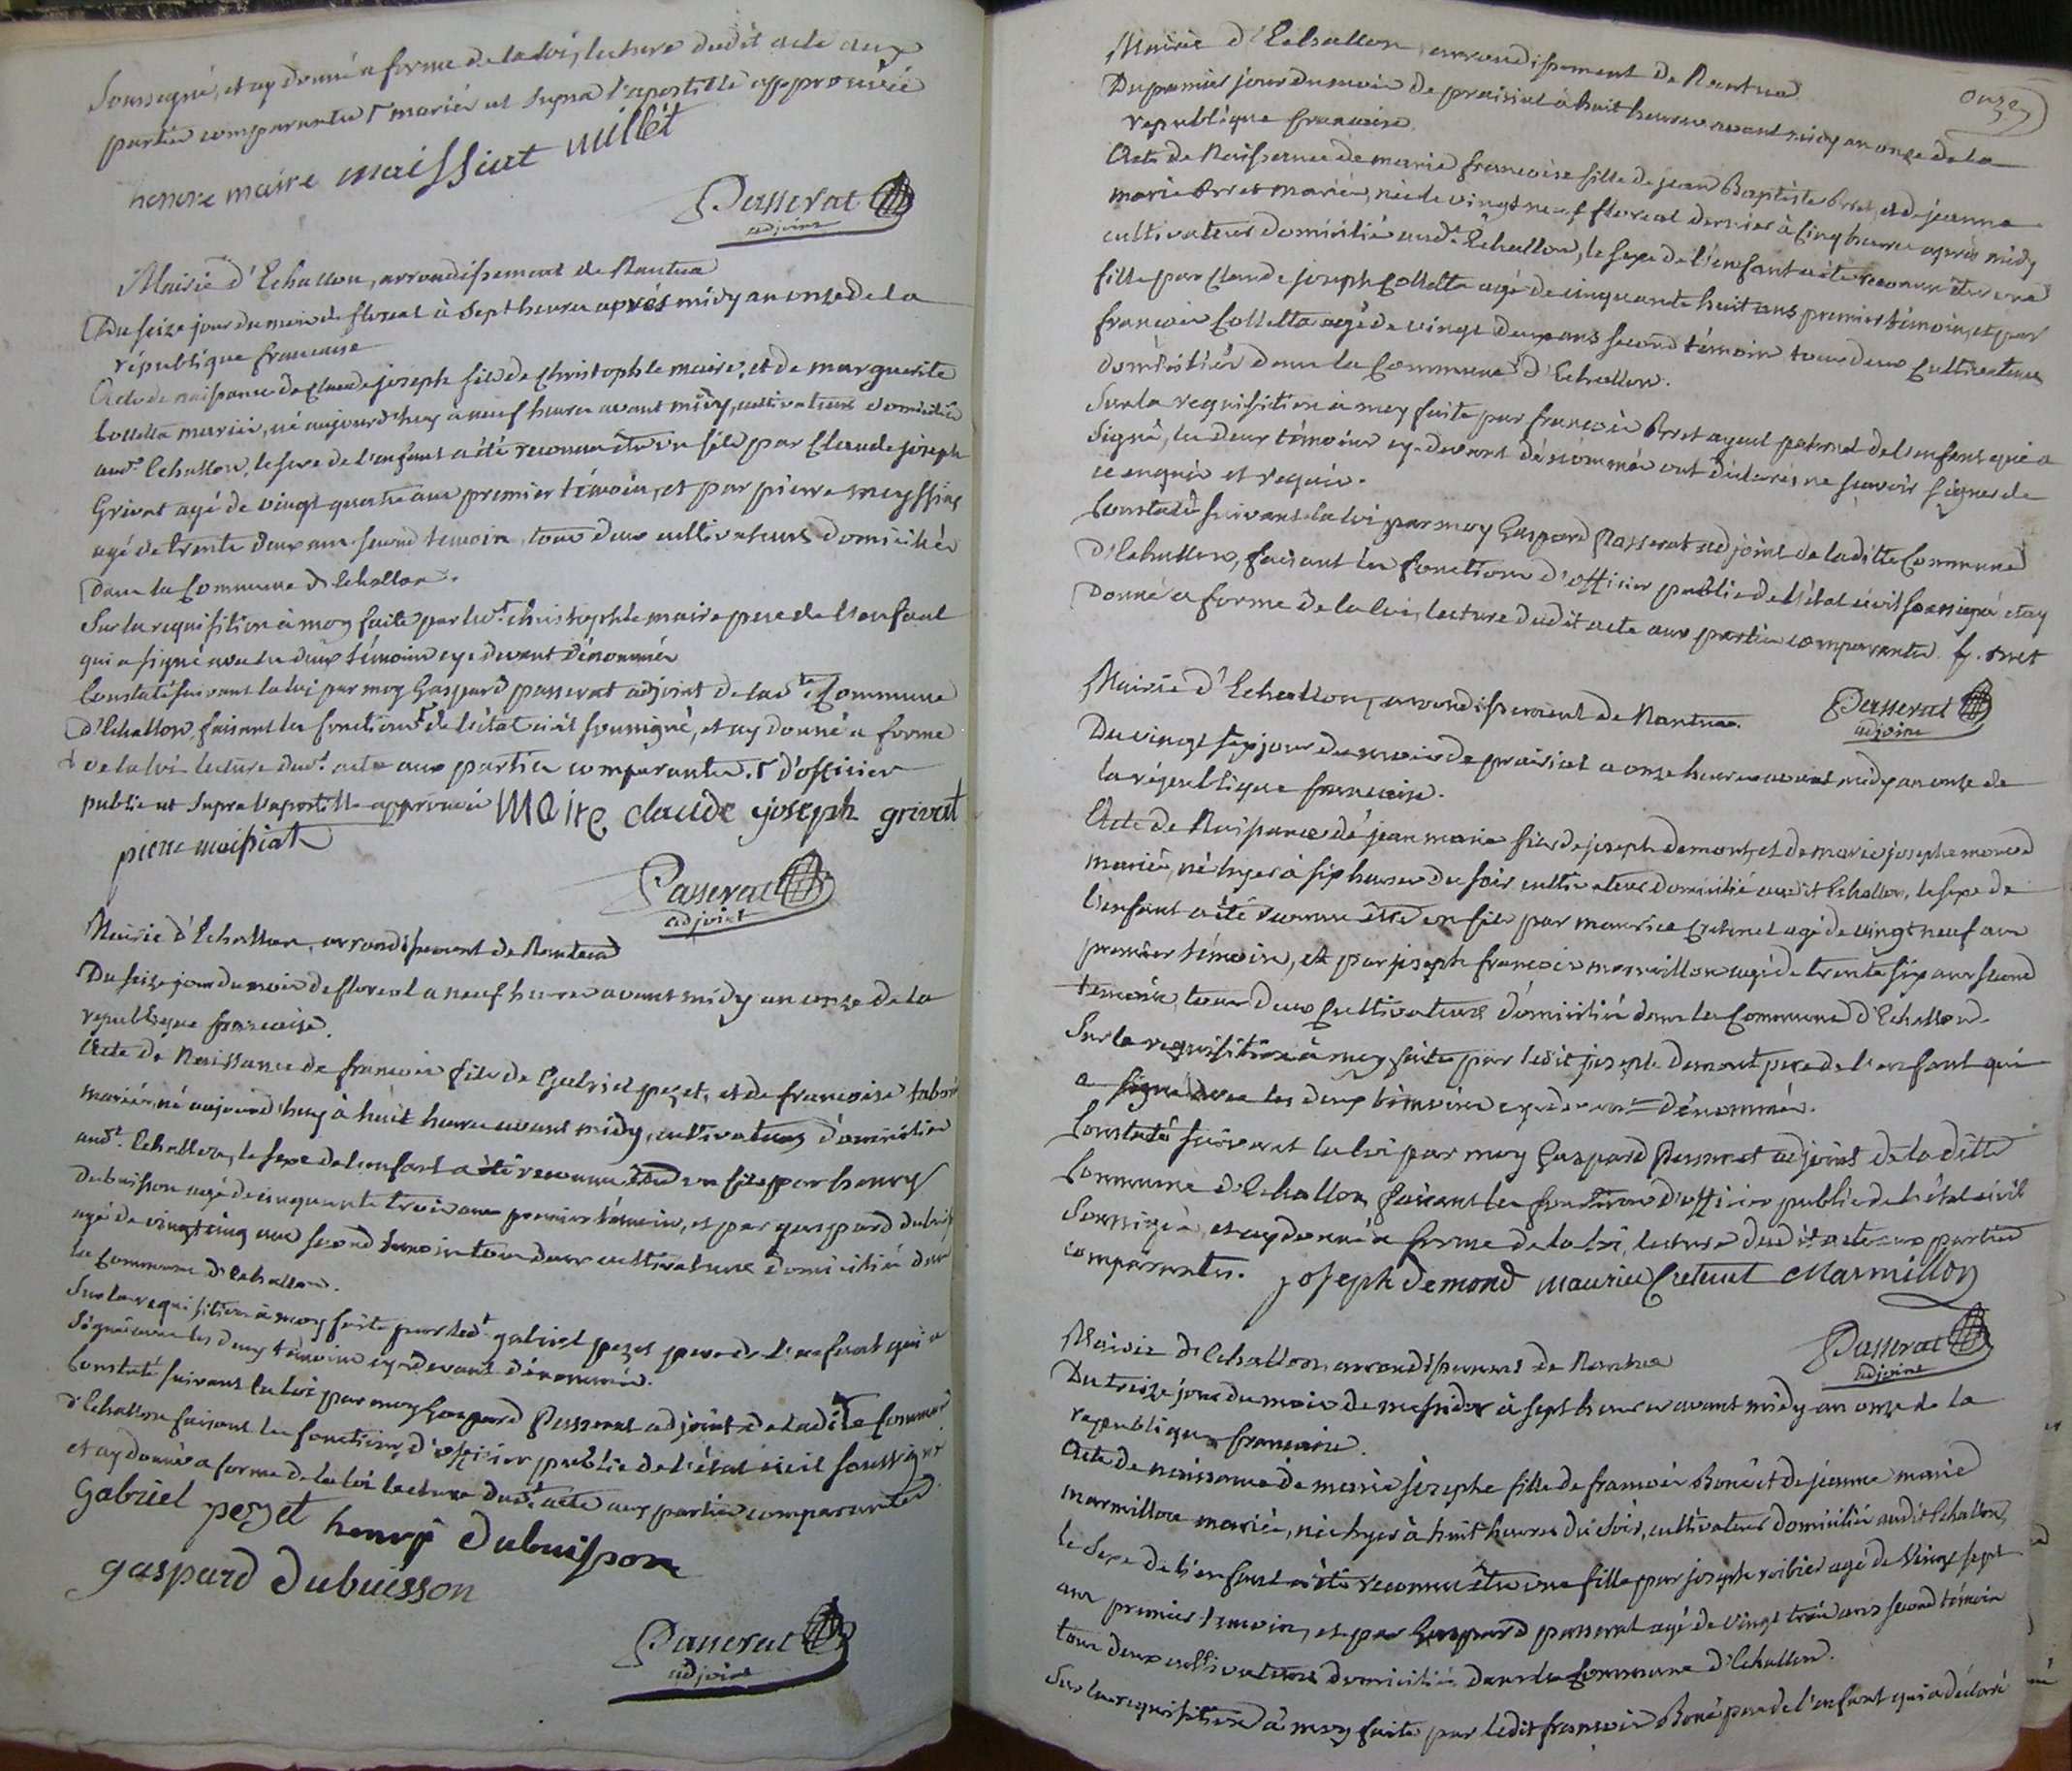 Soussigné, et ay donné a forme de la loi, lecture dudit acte aux
parties comparantes Γ mariés ut supra l'apostille approuvée
honore maire maissiat millet
Passerat
adjoint
Mairie d'Echallon, arrondissement de Nantua
Du seize jour du mois de floreal à sept heures après midy an onze de la
république francaise
Acte de naissance de Claude joseph fils de Christophle maire, et de marguerite
Colletta mariés, né aujourd'huy à neuf heures avant midy, cultivateurs domiciliés
audt Echallon, le sexe de l'enfant a été reconnu être un fils par Claude joseph
Grivat agé de vingt quatre ans premier témoin, et par pierre meyssiat
agé de trente deux ans second temoin, tous deux cultivateurs domiciliés
dans la Commune d'Echallon.
Sur la requisition à moy faite par ledt christophle maire pere de l'enfant
qui a signé avec les deux témoins cy devant dénommés
Constaté suivant la loi par moy Gaspard passerat adjoint de lade Commune
d'Echallon, faisant les fonctions Γ de l'état civil soussigné, et ay donné a forme
de la loi lecture dudt acte aux parties comparantes. Γ d'officier
public ut supra l'apostille approuvée Maire claude joseph grivat
pierre maissiat
Passerat
adjoint
Mairie d'Echallon, arrondissement de Nantua
Du seize jour du mois de floreal a neuf heures avant midy an onze de la
republique francaise.
Acte de Naissance de francois fils de Gabriel pezet, et de francoise
mariés né aujourd'huy à huit heures avant midy, cultivateurs domiciliés
audt. Echallon, le sexe de l'enfant a été reconnu être un fils par henry
dubuisson agé de cinquante trois ans premier témoin, et par gaspard dubuiss
agé de vingt cinq ans second temoin tous deux cultivateurs domiciliés dans
la Commune d'Echallon.
Sur la requisition à moy faite par ledt gabriel pezet pere de l'enfant qui a
signé avec les deux témoins cy devant dénommés.
Constaté suivant la loi par moy Gaspard Passerat adjoint de ladite Commune
d'Echallon faisant les fonctions d'officier public de l'état civil soussigné
et ay donné a forme de la loi lecture dudt acte aux parties comparantes
Gabriel pezet henry dubuisson
gaspard dubuisson
Passerat
adjoint
onze
Mairie d'Echallon, arrondissement de Nantua
Du premier jour du mois de prairial à huit heures avant midy an onze de la
republique francaise.
Acte de Naissance de marie francoise fille de jean Baptiste Bret, et de jeanne
marie Bret mariés, née le vingt neuf floreal dernier à cinq heures après midy
cultivateurs domiciliés audt. Echallon, le sexe de l'enfant a été reconnu être une
fille par Claude joseph Colletta agé de cinquante huit ans premier témoin, et par
francois Colletta agé de vingt deux ans second témoin tous deux Cultivateurs
domiciliés dans la Commune d'Echallon.
Sur la requisition à moy faite par francois Bret ayeul paternel de l'enfant qui a
signé, les deux témoins cy-devant dénommés ont déclarés ne scavoir signer de
ce enquis et requis.
Constaté suivant la loi par moy Gaspard Passerat adjoint de laditte Commune
d'Echallon, faisant les fonctions d'officier public de l'état civil soussigné et ay
Donné a forme de la loi, lecture dudit acte aux parties comparantes. f. bret
Passerat
adjoint
Mairie d'Echallon, arrondissement de Nantua.
Du vingt six jour du mois de prairial a onze heures avant midy an onze de
la république francaise.
Acte de Naissance de jean marie fils de joseph demont, et de marie josephe
mariés, né hyer à six heures du soir, cultivateurs domiciliés audit Echallon, le sexe de
l'enfant a été reconnu être un fils par maurice Cretenet agé de vingt neuf ans
premier témoin, et par joseph francois marmillon agé de trente six ans second
temoin, tous deux Cultivateurs domiciliés dans la Commune d'Echallon.
Sur la requisition à moy faite par ledit joseph demont pere de l'enfant qui
a signé avec les deux témoins cy devant dénommés.
Constaté suivant la loi par moy Gaspard Passerat adjoint de laditte
Commune d'Echallon faisant les fonctions d'officier public de l'état civil
Soussigné, et ay donné a forme de la loi, lecture dudit acte aux parties
comparantes. joseph demond maurice Cretenet Marmillon
Passerat
adjoint
Mairie d'Echallon arrondissement de Nantua
Du treize jour du mois de messidor à sept heures avant midy an onze de la
republique francaise.
Acte de naissance de marie josephe fille de francois Boné et de jeanne marie
marmillon mariés, née hyer à huit heures du soir, cultivateurs domiciliés audit Echallon,
le sexe de l'enfant a été reconnu être une fille par joseph roibier agé de vingt sept
ans premier temoin, et par Gaspard passerat agé de vingt trois ans second témoin
tous deux cultivateurs domiciliés dans la Commune d'Echallon.
Sur la requisition à moy faite par ledit francois Boné pere de l'enfant qui a déclaré